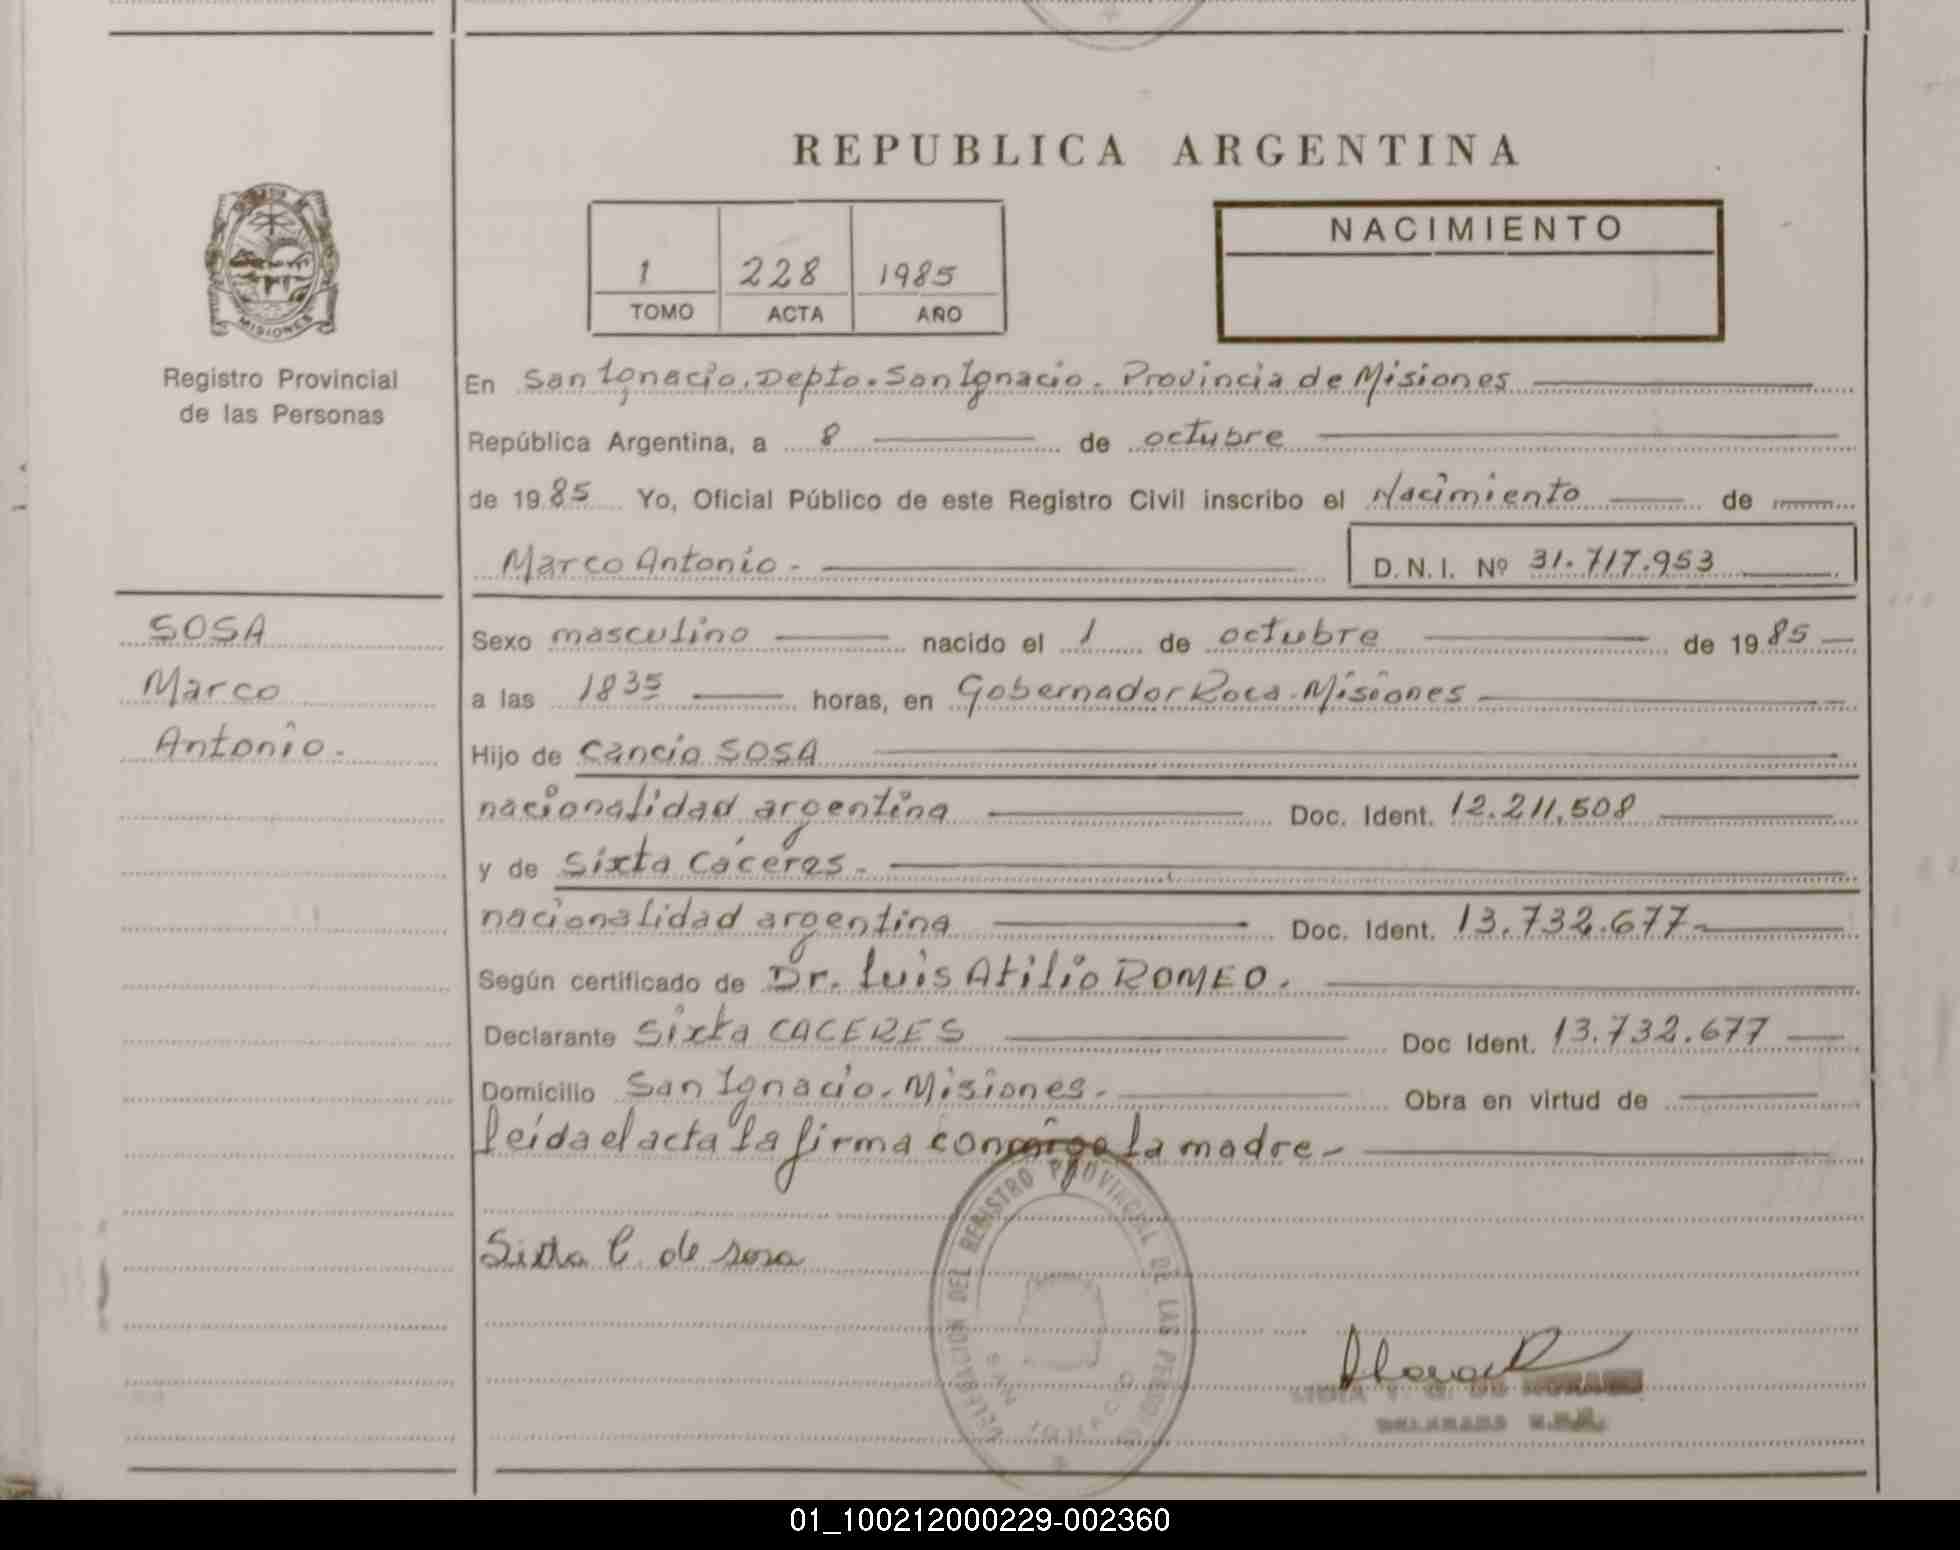 REPUBLICA ARGENTINA
MISIONES
Registro Provincial
de las Personas
1 228 1985
TOMO ACTA AÑO
NACIMIENTO
En San Ignacio. Depto. San Ignacio. Provincia de Misiones
República Argentina, a 8 de octubre
de 1985 Yo, Oficial Público de este Registro Civil inscribo el Nacimiento de
Marco Antonio. D.N.I. Nº 31.717.953
SOSA
Marco
Antonio.
Sexo masculino nacido el 1 de octubre de 1985
a las 1835 horas, en Gobernador Roca. Misiones
Hijo de Cancio SOSA
nacionalidad argentina Doc. Ident. 12.211.508
y de Sixta Cáceres.
nacionalidad argentina Doc. Ident. 13.732.677
Según certificado de Dr. Luis Atilio ROMEO.
Declarante Sixta CACERES Doc Ident. 13.732.677
Domicilio San Ignacio. Misiones. Obra en virtud de
leída el acta la firma conmigo la madre.
Sixta C. de sosa
DELEGACION DEL REGISTRO PROVINCIAL DE LAS PERSONAS
SAN IGNACIO
01_100212000229-002360